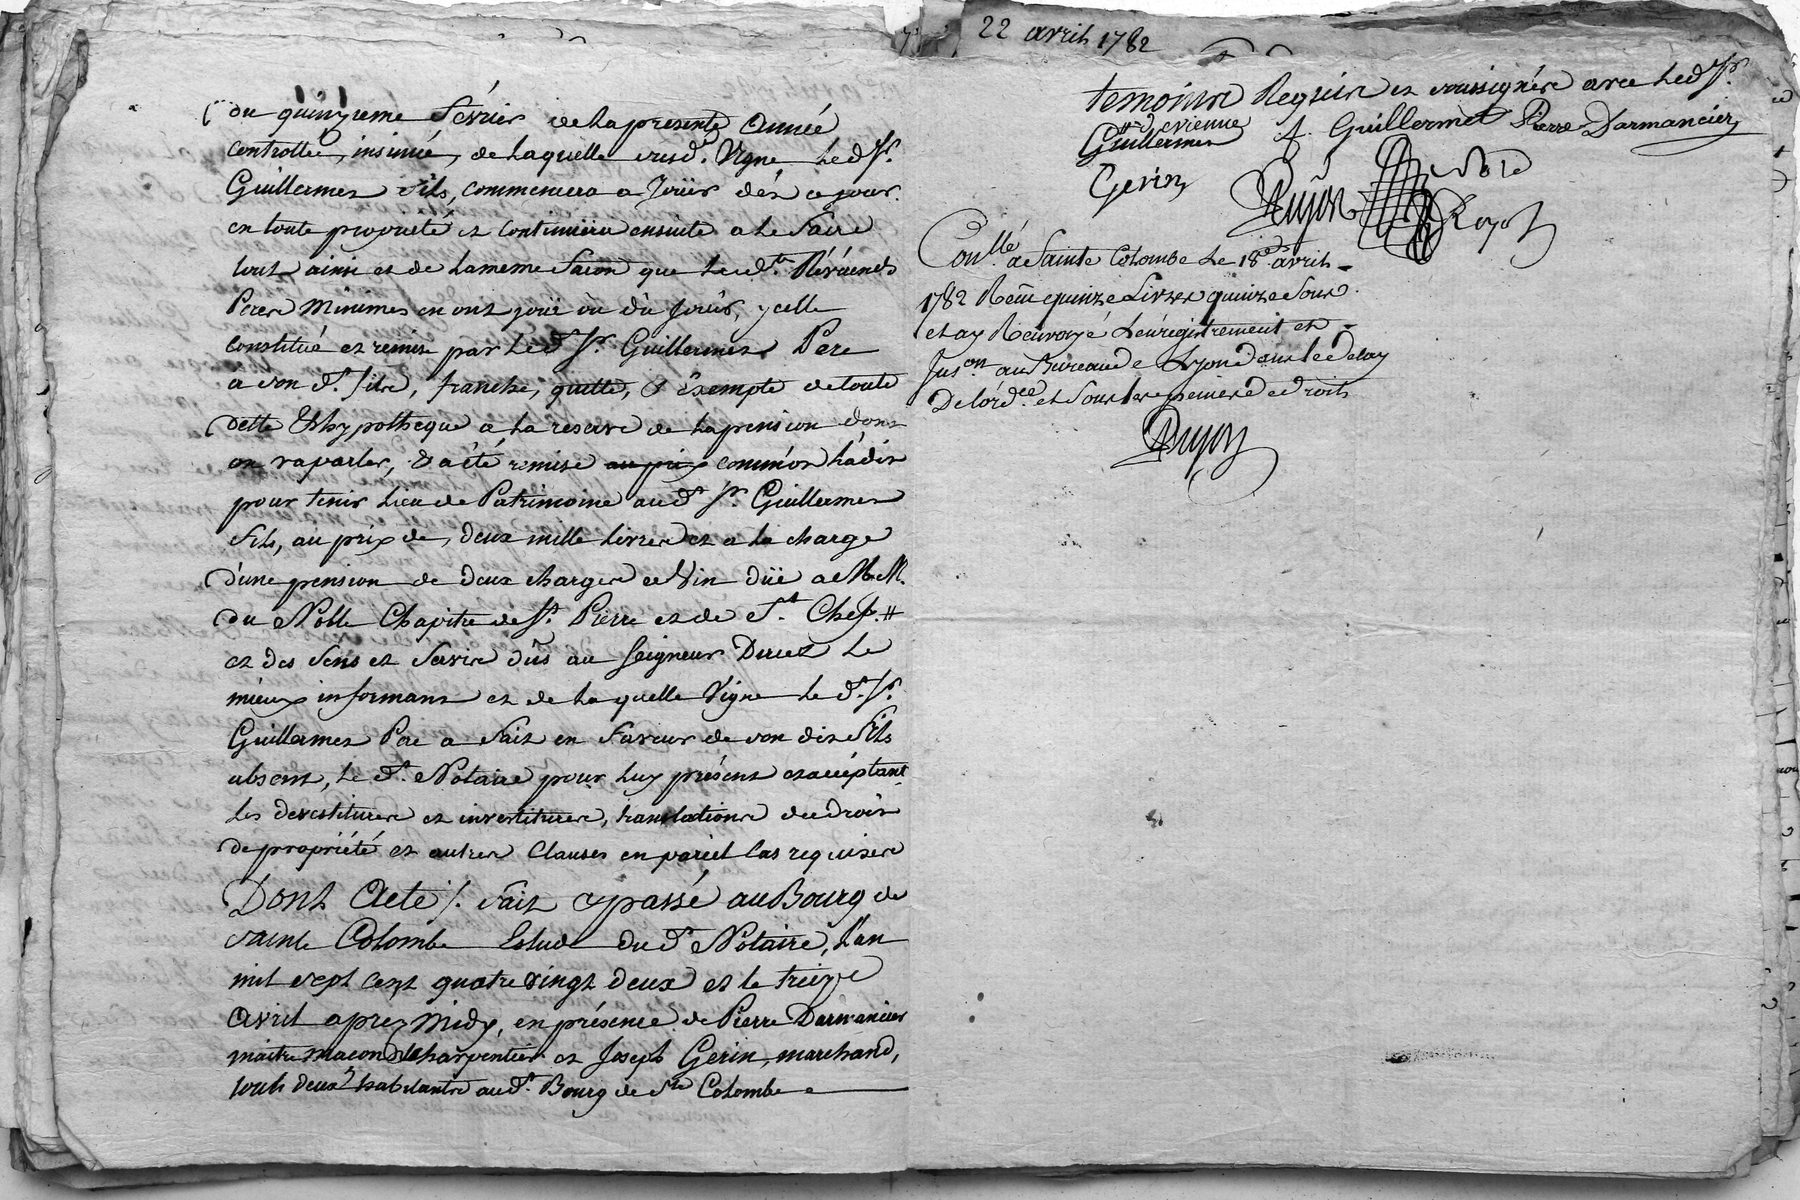 du quinzieme février de la presente Année
controllée, insinué, de laquelle susd. Vigne le d. Sr.
Guillermet fils, commencera a Joüir dés ce jour.
en toute propriété et continüera ensuite a le faire
tout ainsi et de la meme facon que les d.ts Révérends
Peres Minimes en ont joüi ou dû Joüir, ycelle
constitué et remise par le d. Sr. Guillermet Pere
a son d. fils, franche, quitte, & Exempte de toute
dette & hypotheque a la reserve de la pension dont
on va parler, & a été remise au prix comme on l'a dit
pour tenir Lieu de Patrimoine au d. Sr. Guillermet
fils, au prix de, deux mille livres et a la charge
d'une pension de deux charges de Vin düe a M. M.
du Noble Chapitre de St. Pierre et de St. Chef. #
et des Sens et Servis dûs au Seigneur Direct le
mieux informant et de la quelle Vigne le d. Sr.
Guillermet Pere a fait en faveur de son dit fils
absent, le d. Notaire pour luy présent et accéptant
les devestitures et investitures, translations de droit
de propriété et autres Clauses en pareil Cas requises
Dont Acte /. fait & passé au Bourg de
Sainte Colombe Etude du d. Notaire, l'an
mil sept cent quatre vingt deux et le treize
Avril aprez Midy, en présence de Pierre Darmancier
maitre macon & charpentier et Joseph Gerin, marchand,
touts deux habitants au d. Bourg de Ste Colombe
22 avril 1782
temoins Requis et soussignés avec le d. Sr.
Guillermet # de vienne A. Guillermet Pierre Darmancier
Gerin Dujon Note Royal
Con.llé a Sainte Colombe Le 18e avril
1782 Reçu quinze Livres quinze Sous
et ay Renvoyé L'enregistrement et
Ins.on au Bureau de Lyon dans le Delay
De l'ord.ce et Sous les peines de droits
Dujon